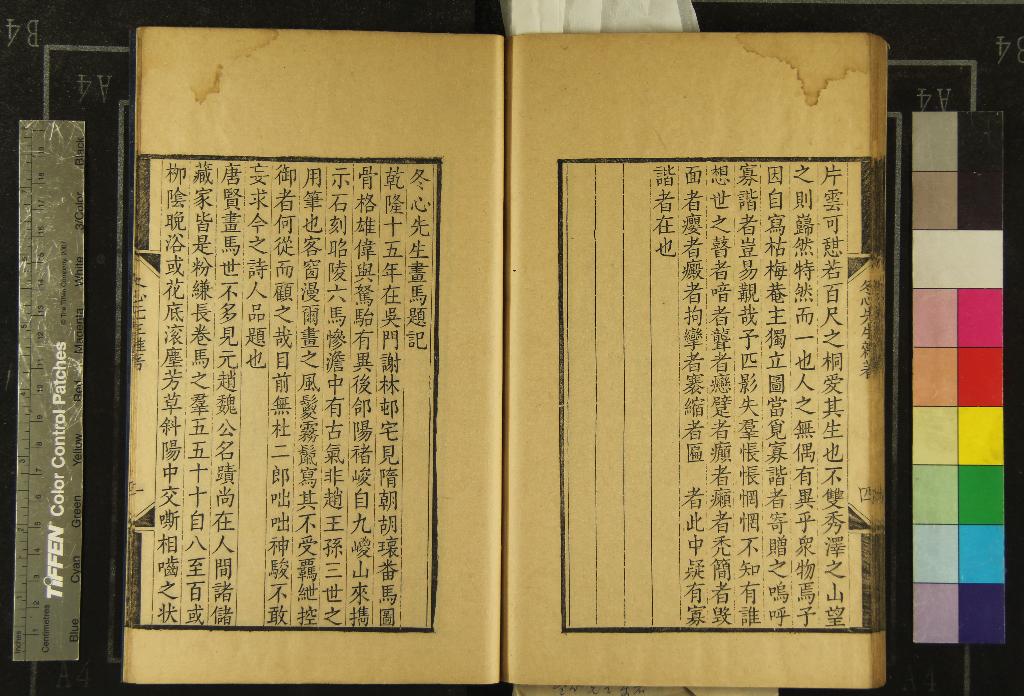 片雲可憇若百尺之桐爰其生也不雙秀澤之山望
之則巋然特然而一也人之無偶有異乎衆物焉予
因自寫枯梅菴主獨立圖當覓寡諧者寄贈之嗚呼
寡諧者豈易覯哉予匹影失羣悵悵惘惘不知有誰
想世之瞽者喑者聾者戀躄者癲者癩者禿簡者毀
面者癭者癜者拘攣者褰縮者匾 者此中疑有寡
諧者在也
冬心先生雜著
四
冬心先生畫馬題記
乾隆十五年在吳門謝林邨宅見隋朝胡瓌番馬圖
骨格雄偉與駑駘有異後郃陽褚峻自九嵕山來擕
示石刻昭陵六馬慘澹中有古氣非趙王孫三世之
用筆也客窗漫爾畫之風鬉霧鬛寫其不受羈紲控
御者何從而顧之哉目前無杜二郎咄咄神駿不敢
妄求今之詩人品題也
唐賢畫馬世不多見元趙魏公名蹟尚在人間諸儲
藏家皆是粉縑長卷馬之羣五五十十自八至百或
柳陰晚浴或花底滚塵芳草斜陽中交嘶相嚙之状
TIFFEN Color Control Patches
© The Tiffen Company, 2007
Inches
Centimetres
Blue
Cyan
Green
Yellow
Red
Magenta
White
3/Color
Black
A4
B4
A4